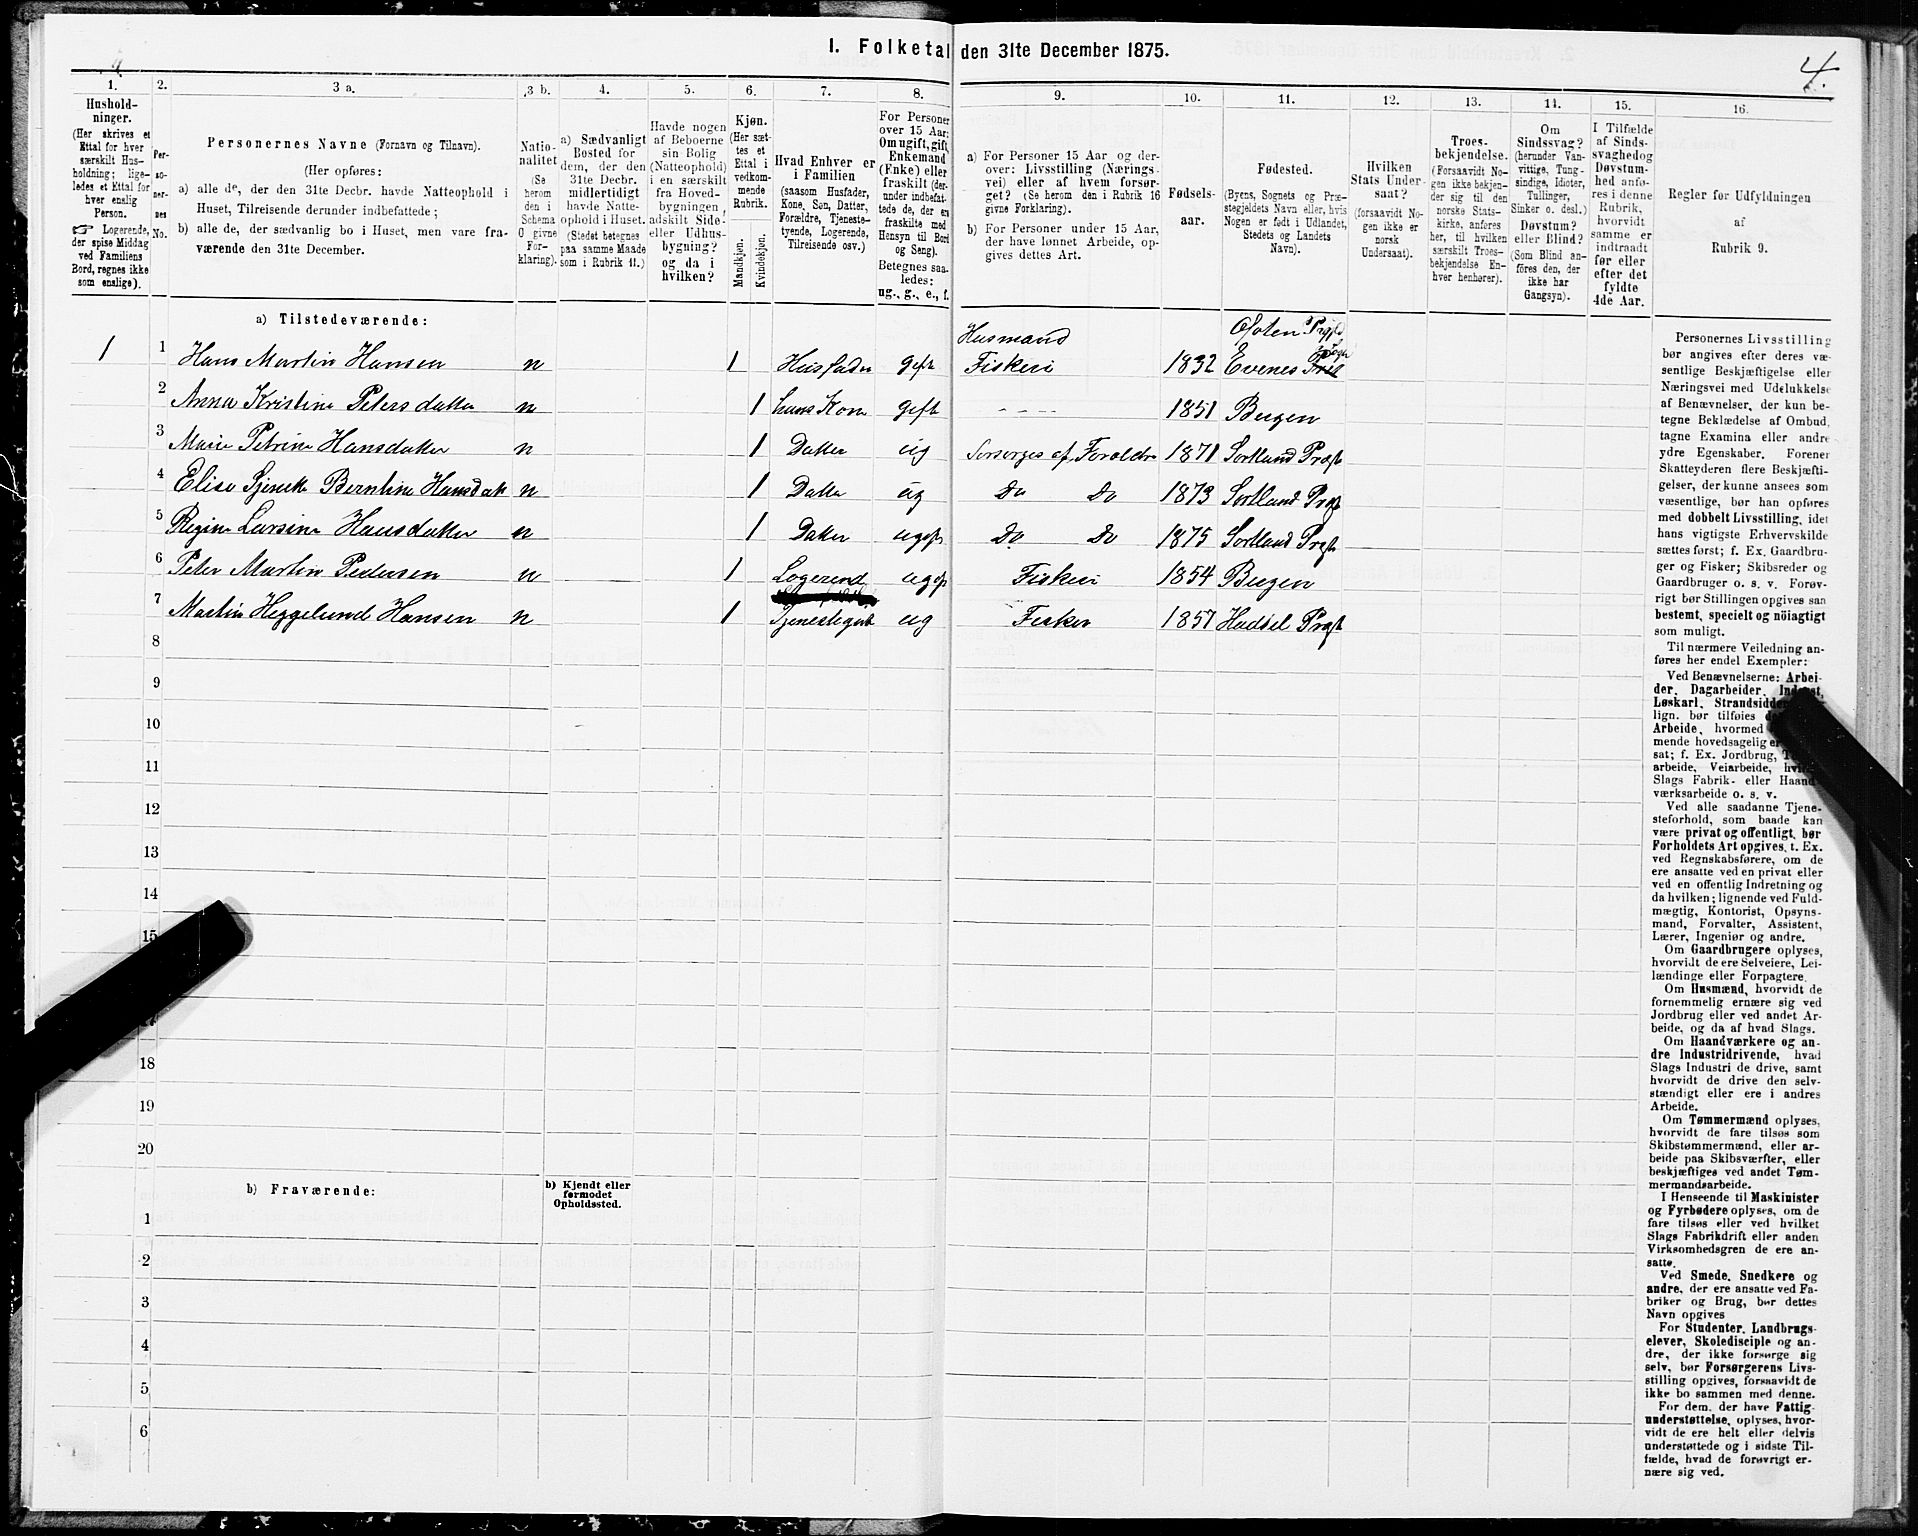 I. Folketal den 31te December 1875.
4.
1. 2. 3 a. 3 b. 4. 5. 6. 7. 8. 9. 10. 11. 12. 13. 14. 15. 16.
Hushold-
ninger.
(Her skrives et
Ettal for hver
særskilt Hus-
holdning; lige-
ledes et Ettal for
hver enslig
Person.
☞ Logerende,
der spise Middag
ved Familiens
Bord, regnes ikke
som enslige).
Per-
so-
ner-
nes
No.
Personernes Navne (Fornavn og Tilnavn).
(Her opføres:
a) alle de, der den 31te Decbr. havde Natteophold i
Huset, Tilreisende derunder indbefattede;
b) alle de, der sædvanlig bo i Huset, men vare fra-
værende den 31te December.
Natio-
nalitet
(Se
herom
den i
Schema
O givne
For-
klaring).
a) Sædvanligt
Bosted for
dem, der den
31te Decbr.
midlertidigt
havde Natte-
ophold i Huset.
(Stedet betegnes
paa samme Maade
som i Rubrik 11.)
Havde nogen
af Beboerne
sin Bolig
(Natteophold)
i en særskilt
fra Hoved-
bygningen
adskilt Side-
eller Udhus-
bygning?
og da i
hvilken?
Kjøn.
(Her sæt-
tes et
Ettal i
vedkom-
mende
Rubrik.
Mandkjøn.
Kvindekjøn.
Hvad Enhver er
i Familien
(saasom Husfader,
Kone, Søn, Datter,
Forældre, Tjeneste-
tyende, Logerende,
Tilreisende osv.)
For Personer
over 15 Aar:
Om ugift, gift,
Enkemand
(Enke) eller
fraskilt (der-
under indbefat-
tede de, der ere
fraskilte med
Hensyn til Bord
og Seng).
Betegnes saa-
ledes:
ug., g., e., f.
a) For Personer 15 Aar og der-
over: Livsstilling (Nærings-
vei) eller af hvem forsør-
get? (Se herom den i Rubrik 16
givne Forklaring).
b) For Personer under 15 Aar,
der have lønnet Arbeide, op-
gives dettes Art.
Fødsels-
aar.
Fødested.
(Byens, Sognets og Præ-
stegjeldets Navn eller, hvis
Nogen er født i Udlandet,
Stedets og Landets
Navn).
Hvilken
Stats Under-
saat?
(forsaavidt No-
gen ikke er
norsk
Undersaat).
Troes-
bekjendelse.
(Forsaavidt No-
gen ikke bekjen-
der sig til den
norske Stats-
kirke, anføres
her, til hvilken
særskilt Troes-
bekjendelse En-
hver henhører).
Om
Sindssvag?
(herunder Van-
vittige, Tung-
sindige, Idioter,
Tullinger,
Sinker o. desl.)
Døvstum?
eller Blind?
(Som Blind an-
føres den, der
ikke har
Gangsyn).
I Tilfælde
af Sinds-
svaghed og
Døvstum-
hed anfø-
res i denne
Rubrik,
hvorvidt
samme er
indtraadt
før eller
efter det
fyldte
4de Aar.
Regler før Udfyldningen
af
Rubrik 9.
a) Tilstedeværende:
Husmand Ofoten Prgjld
1 1 Hans Martin Hansen n 1 Husfader gift Fiskeri 1832 Evenes
2 Anna Kristine Petersdatter n 1 hans Kone gift ---- 1851 Bergen
3 Marie Petrine Hansdatter n 1 Datter ug Forsørges af Foraldre 1871 Sortland Præst
4 Elise Berntine Hansdatt n 1 Datter ug Do Do 1873 Sortland Præst
5 Regine Larsine Hansdatter n 1 Datter ugift Do Do 1875 Sortland Præst
6 Peter Martin Pedersen n 1 Logerend ugift Fiskeri 1854 Bergen
7 Martin Heggelund Hansen n 1 Tjenestegut ug Fisker 1857 Hadsel Præst
8
9
10
11
12
13
14
15
17
18
19
20
b) Fraværende:
b) Kjendt eller
formodet
Opholdssted.
1
2
3
4
5
6
Personernes Livsstilling
bør angives efter deres væ-
sentlige Beskjæftigelse eller
Næringsvei med Udelukkelse
af Benævnelser, der kun be-
tegne Beklædelse af Ombud,
tagne Examina eller andre
ydre Egenskaber. Forener
Skatteyderen flere Beskjæfti-
gelser, der kunne ansees som
væsentlige, bør han opføres
med dobbelt Livsstilling, idet
hans vigtigste Erhvervskilde
sættes først; f. Ex. Gaardbru-
ger og Fisker; Skibsreder og
Gaardbruger o. s. v. Forøv-
rigt bør Stillingen opgives saa
bestemt, specielt og nöiagtigt
som muligt.
Til nærmere Veiledning an-
føres her endel Exempler:
Ved Benævnelserne: Arbei-
der, Dagarbeider,
Løskarl,
lign. bør tilføies
Arbeide, hvormed
mende hovedsagelig er
sat; f. Ex. Jordbrug,
arbeide, Veiarbeide,
Slags Fabrik- eller Haand-
værksarbeide o. s. v.
Ved alle saadanne Tjene-
steforhold, som baade kan
være privat og offentligt, bør
Forholdets Art opgives, t. Ex.
ved Regnskabsførere, om de
ere ansatte ved en privat eller
ved en offentlig Indretning og
da hvilken; lignende ved Fuld-
mægtig, Kontorist, Opsyns-
mand, Forvalter, Assistent,
Lærer, Ingeniør og andre.
Om Gaardbrugere oplyses,
hvorvidt de ere Selveiere, Lei-
lændinge eller Forpagtere.
Om Husmænd, hvorvidt de
fornemmelig ernære sig ved
Jordbrug eller ved andet Ar-
beide, og da af hvad Slags.
Om Haandværkere og an-
dre Industridrivende, hvad
Slags Industri de drive, samt
hvorvidt de drive den selv-
stændigt eller ere i andres
Arbeide.
Om Tømmermænd oplyses,
hvorvidt de fare tilsøs som
Skibstømmermænd, eller ar-
beide paa Skibsværfter, eller
beskjæftiges ved andet Tøm-
mermandsarbeide.
I Henseende til Maskinister
og Fyrbødere oplyses, om de
fare tilsøs eller ved hvilket
Slags Fabrikdrift eller anden
Virksomhedsgren de ere an-
satte.
Ved Smede, Snedkere og
andre, der ere ansatte ved Fa-
briker og Brug, bør dettes
Navn opgives
For Studenter, Landbrugs-
elever, Skoledisciple og an-
dre, der ikke forsørge sig
selv, bør Forsørgerens Livs-
stilling opgives, forsaavidt de
ikke bo sammen med denne.
For dem, der have Fattig-
understøttelse, oplyses, hvor-
vidt de ere helt eller delvis
understøttede og i sidste Til-
fælde, hvad de forøvrigt er-
nære sig ved.